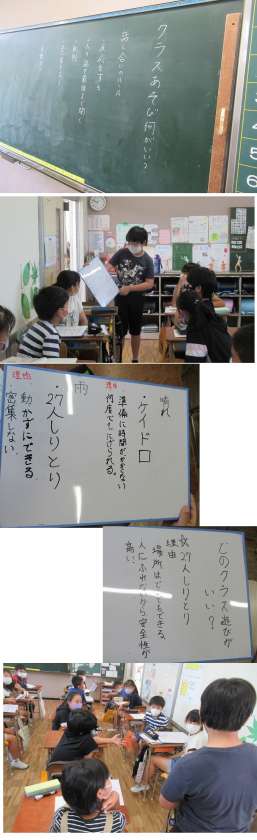 クラスあそび何がいい?
話し合いのルール
・反応をする
・人の話を最後まで聞く
晴れ
・ケイドロ
理由
準備に時間がかからない
何度でもにげられる。
雨
・27人しりとり
理由
・動かずにできる
・密集しない
どのクラス遊びが
いい?
27人しりとり
理由
場所はどこでもできる
人にふれないから、安全性が
高い。